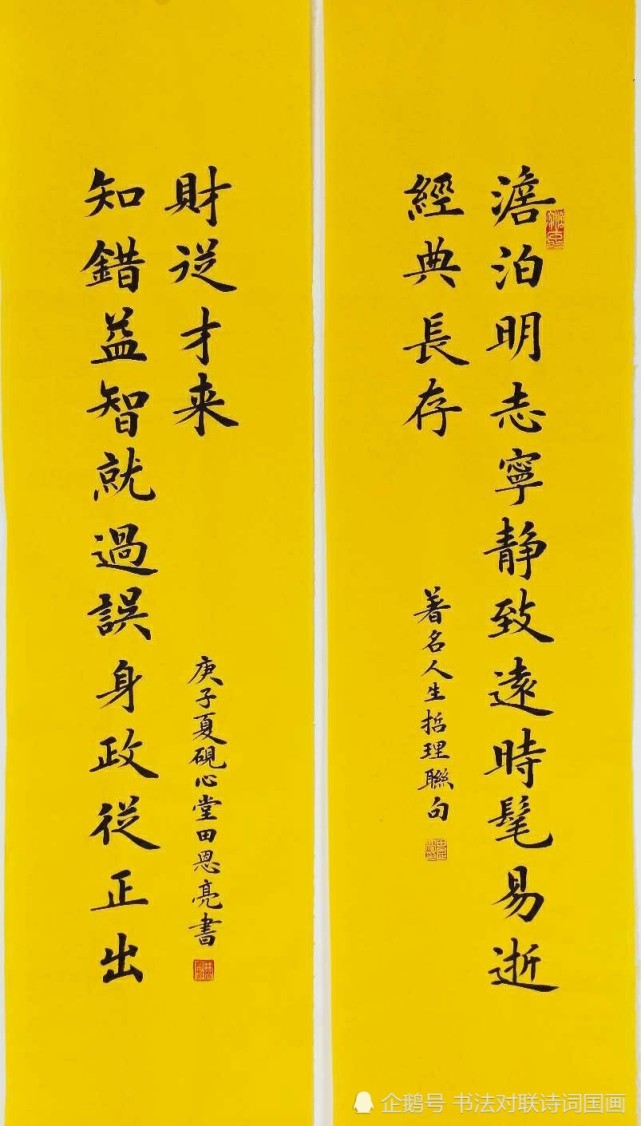 澹泊明志寧静致遠時髦易逝
經典長存
著名人生哲理聯句
知錯益智就過誤身政従正出
財従才来
庚子夏硯心堂田恩亮書
企鹅号 书法对联诗词国画